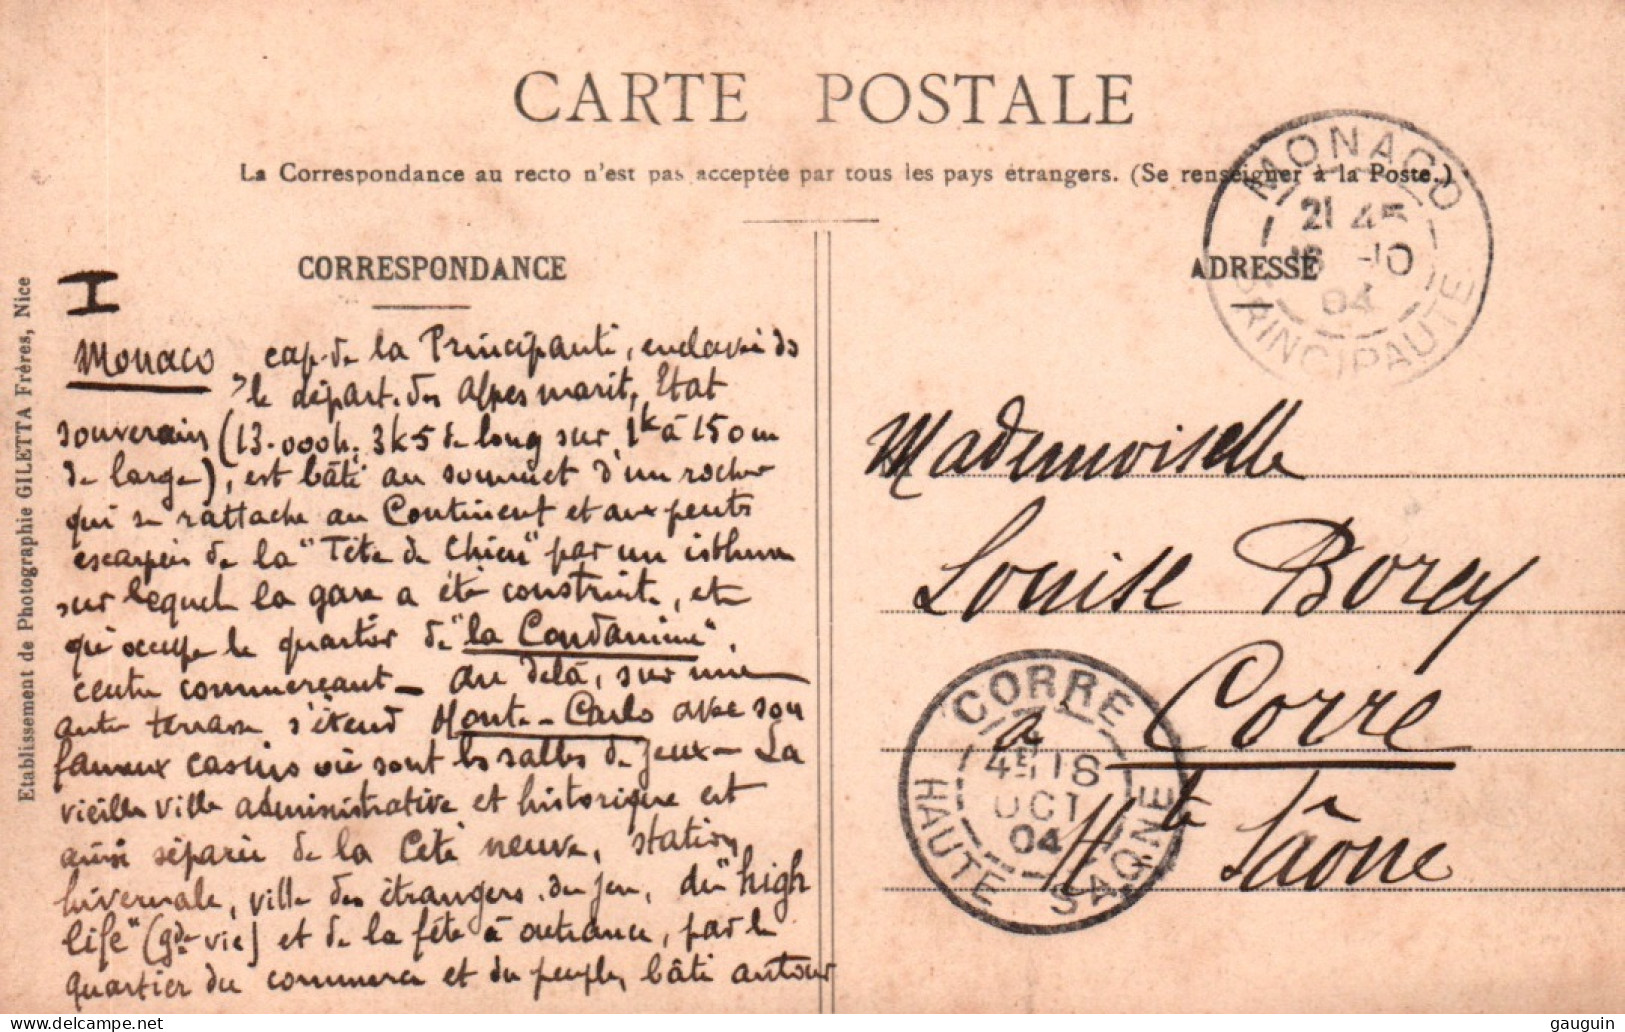 CARTE POSTALE
La Correspondance au recto n'est pas acceptée par tous les pays étrangers. (Se renseigner à la Poste.)
CORRESPONDANCE
I
Monaco, cap. de la Principauté, enclavée ds
le départ. des Alpes marit, Etat
souverain (13.000h. 3k5 de long sur 1k à 150m
de large), est bâti au sommet d'un rocher
qui se rattache au Continent et aux pentes
escarpées de la "Tête de Chien" par un isthme
sur lequel la gare a été construite, et
qu'occupe le quartier de "la Condamine"
centre commerçant — au delà, sur une
autre terrasse s'étend Monte-Carlo avec son
fameux casino où sont les salles de jeux — La
vieille ville administrative et historique est
ainsi séparée de la Cité neuve, station
hivernale, ville des étrangers, du jeu, du "high
life" (gde vie) et de la fête à outrance, par le
quartier du commerce et du peuple, bâti autour
Etablissement de Photographie GILETTA Frères, Nice
ADRESSE
MONACO
21 45
16 -10
04
PRINCIPAUTÉ
Mademoiselle
Louise Borey
à Corre
Hte Sâone
CORRE
4E 18
OCT
04
HAUTE SAONE
gauguin © www.delcampe.net